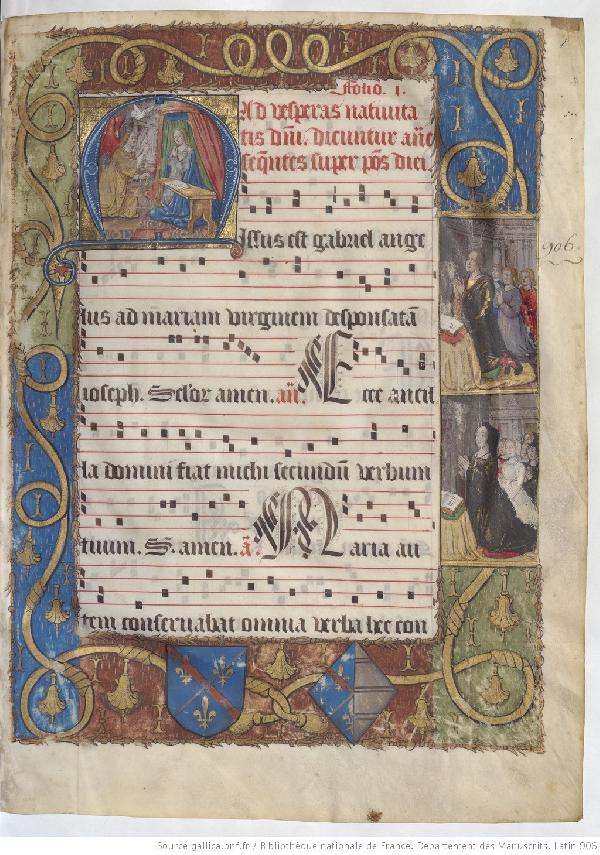 ffolio. I.
Ad vesperas nativita
tis dñi. dicuntur añe
seq̃ntes super p̃os dici.
Missus est gabriel ange
lus ad mariam virginem desponsatã
ioseph. Sełor amen. añ. Ecce ancil
la domini fiat michi secundũ verbum
tuum. S. amen. ã. Maria au
tem conservabat omnia verba hec con
906.
Source gallica.bnf.fr / Bibliothèque nationale de France. Département des Manuscrits. Latin 906